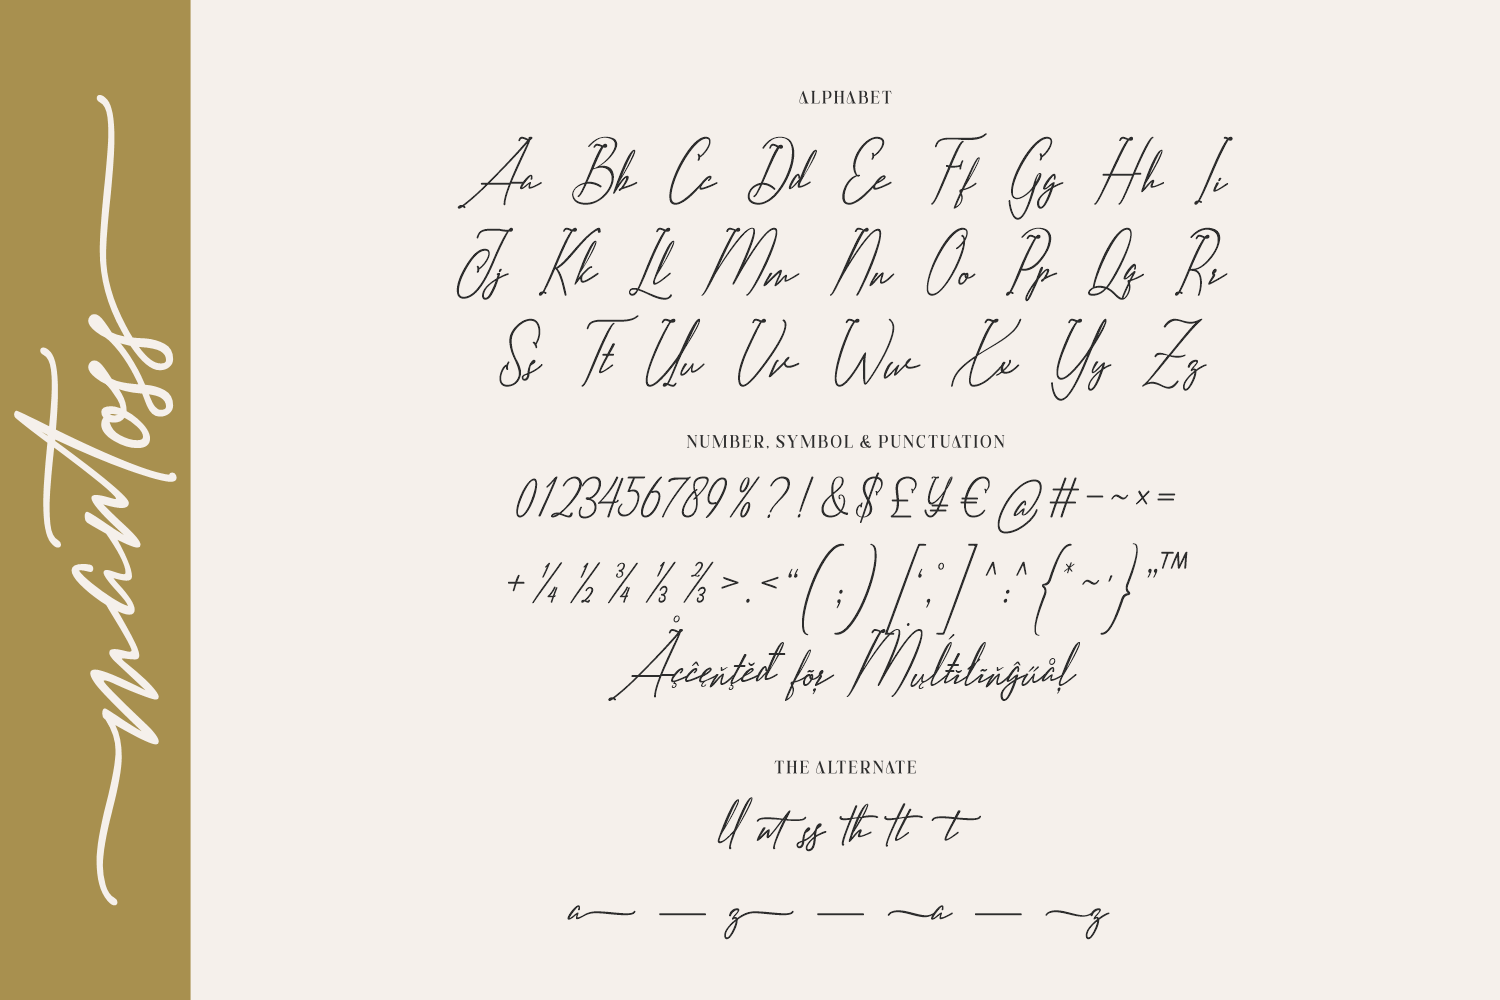 mantoss
ALPHABET
Aa Bb Cc Dd Ee Ff Gg Hh Ii
Jj Kk Ll Mm Nn Oo Pp Qq Rr
Ss Tt Uu Vv Ww Xx Yy Zz
NUMBER, SYMBOL & PUNCTUATION
0123456789%?!&$£¥€@#-~×=
+¼½¾⅓⅔>.<“(;)[‘,°]^:^{*~'}”™
Åçčęňţěđ fõŗ Mųlŧĭlĩňĝűåļ
THE ALTERNATE
ll nt ss th tt t
a — z — a — z